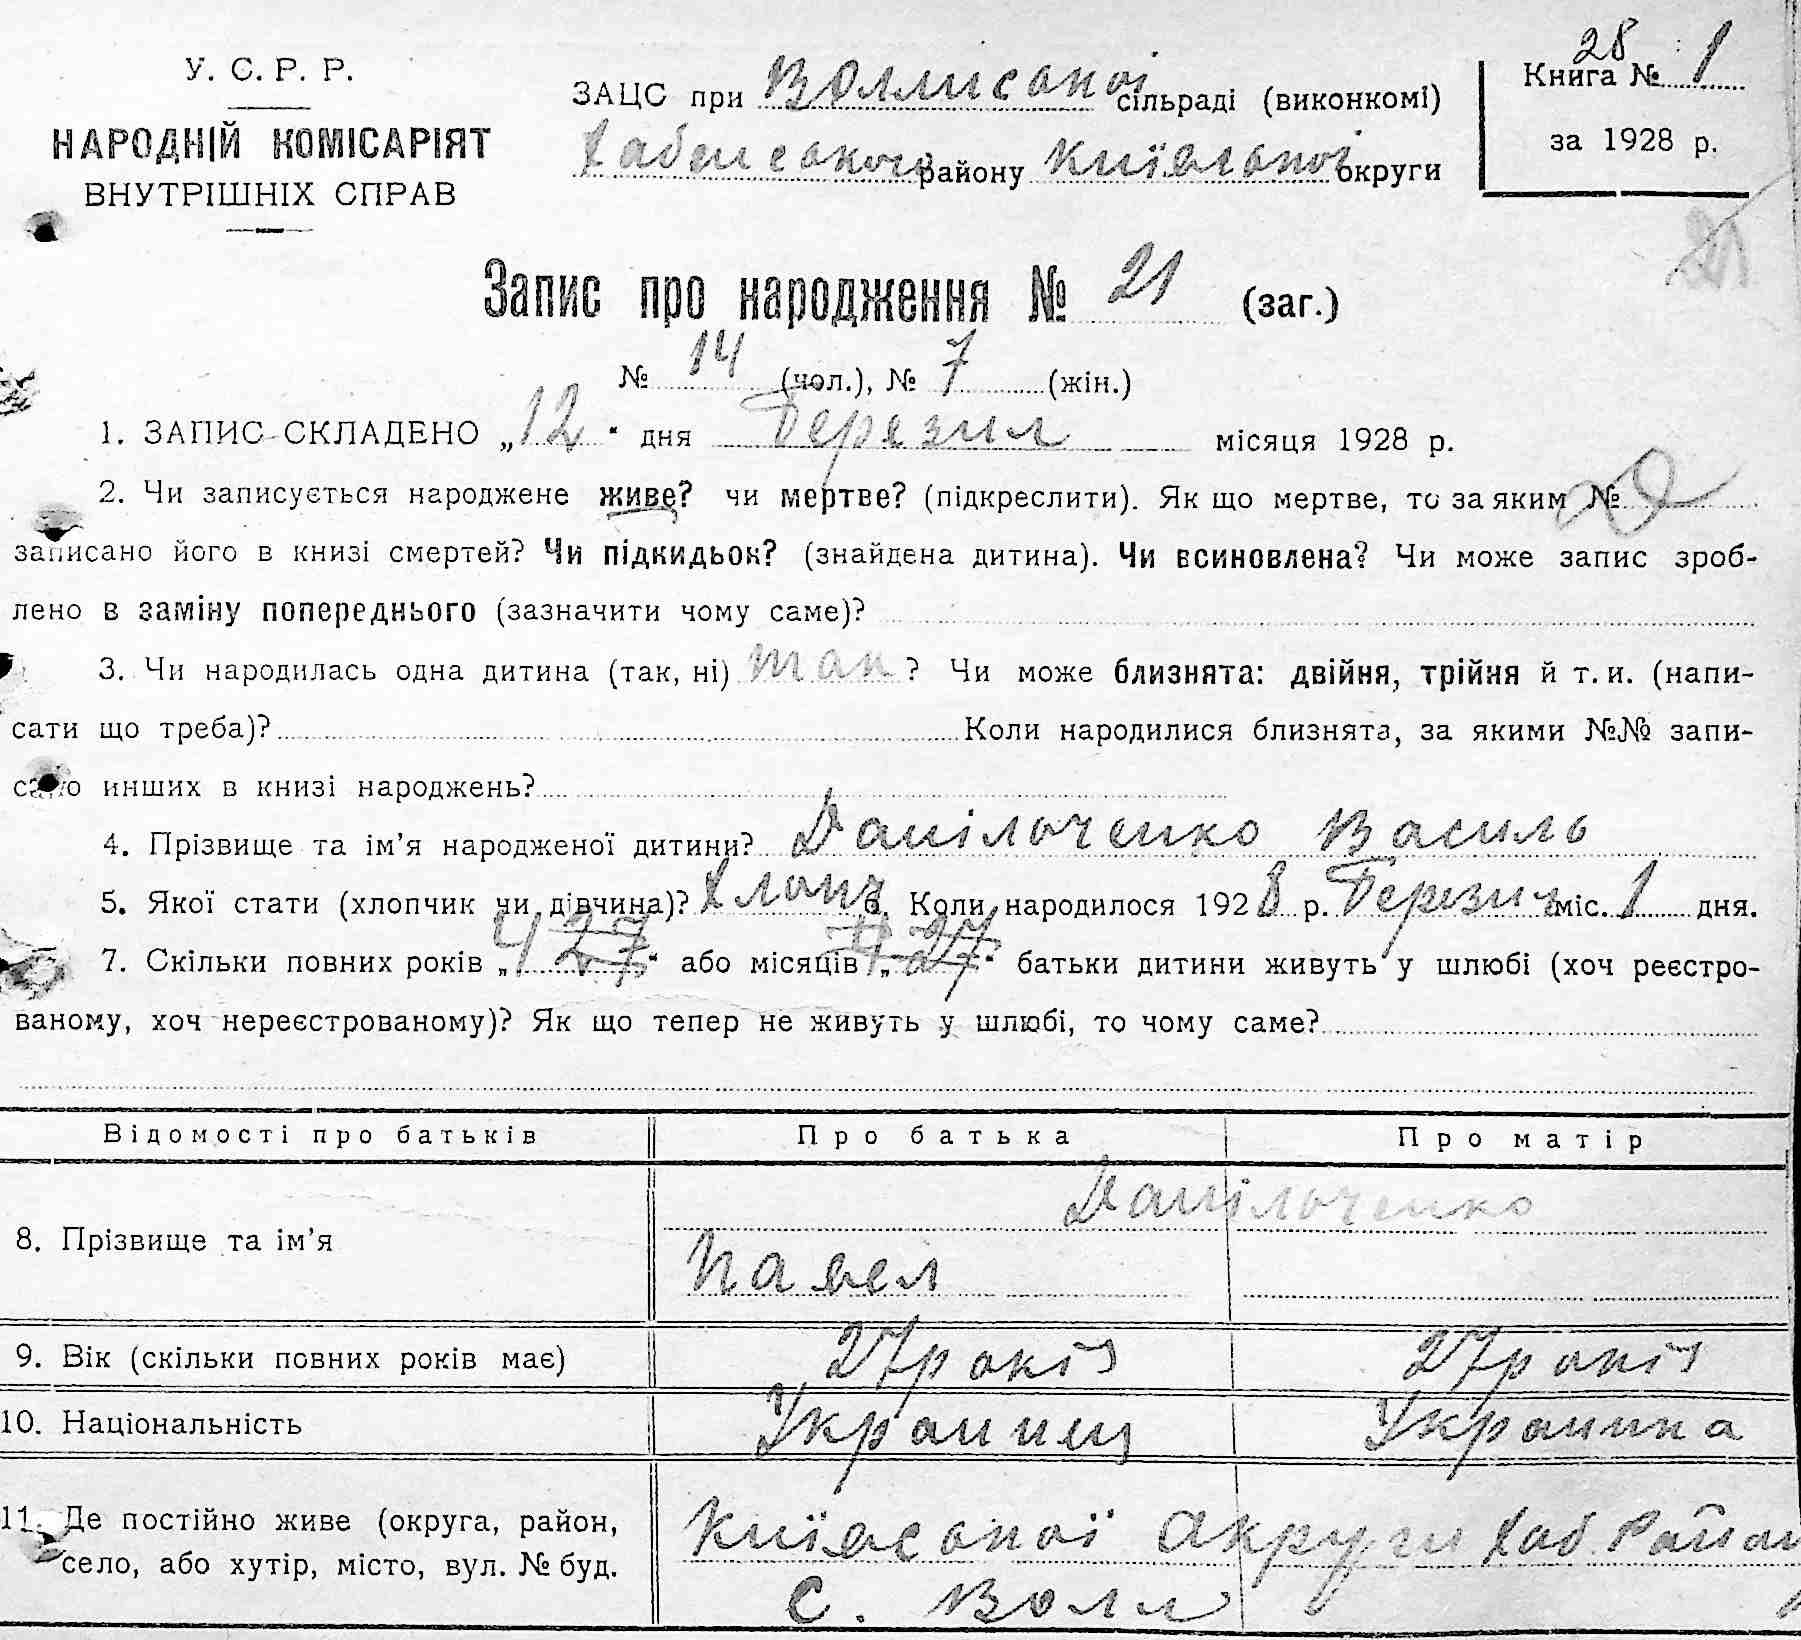 У. С. Р. Р.
НАРОДНІЙ КОМІСАРІЯТ
ВНУТРІШНІХ СПРАВ
ЗАЦС при сільраді (виконкомі)
Хабенського району Київської округи
28
Книга № 1
за 1928 р.
21
Запис про народження № 21 (заг.)
№ 14 (чол.), № 7 (жін.)
1. ЗАПИС СКЛАДЕНО „12“ дня Березня місяця 1928 р.
2. Чи записується народжене живе? чи мертве? (підкреслити). Як що мертве, то за яким №
записано його в книзі смертей? Чи підкидьок? (знайдена дитина). Чи всиновлена? Чи може запис зроб-
лено в заміну попереднього (зазначити чому саме)?
3. Чи народилась одна дитина (так, ні) так? Чи може близнята: двійня, трійня й т. и. (напи-
сати що треба)? Коли народилися близнята, за якими №№ запи-
сано инших в книзі народжень?
4. Прізвище та ім’я народженої дитини? Данільченко Василь
5. Якої стати (хлопчик чи дівчина)? Хлопч 6. Коли народилося 1928 р. Березня міс. 1 дня.
7. Скільки повних років „4 27“ або місяців „27“ батьки дитини живуть у шлюбі (хоч реєстро-
ваному, хоч нереєстрованому)? Як що тепер не живуть у шлюбі, то чому саме?
Відомості про батьків Про батька Про матір
Данільченко
8. Прізвище та ім’я
Павел
9. Вік (скільки повних років має) 27 років 27 років
10. Національність Украинец Украинка
11. Де постійно живе (округа, район, Київської Округи Хаб. Район
село, або хутір, місто, вул. № буд. С.